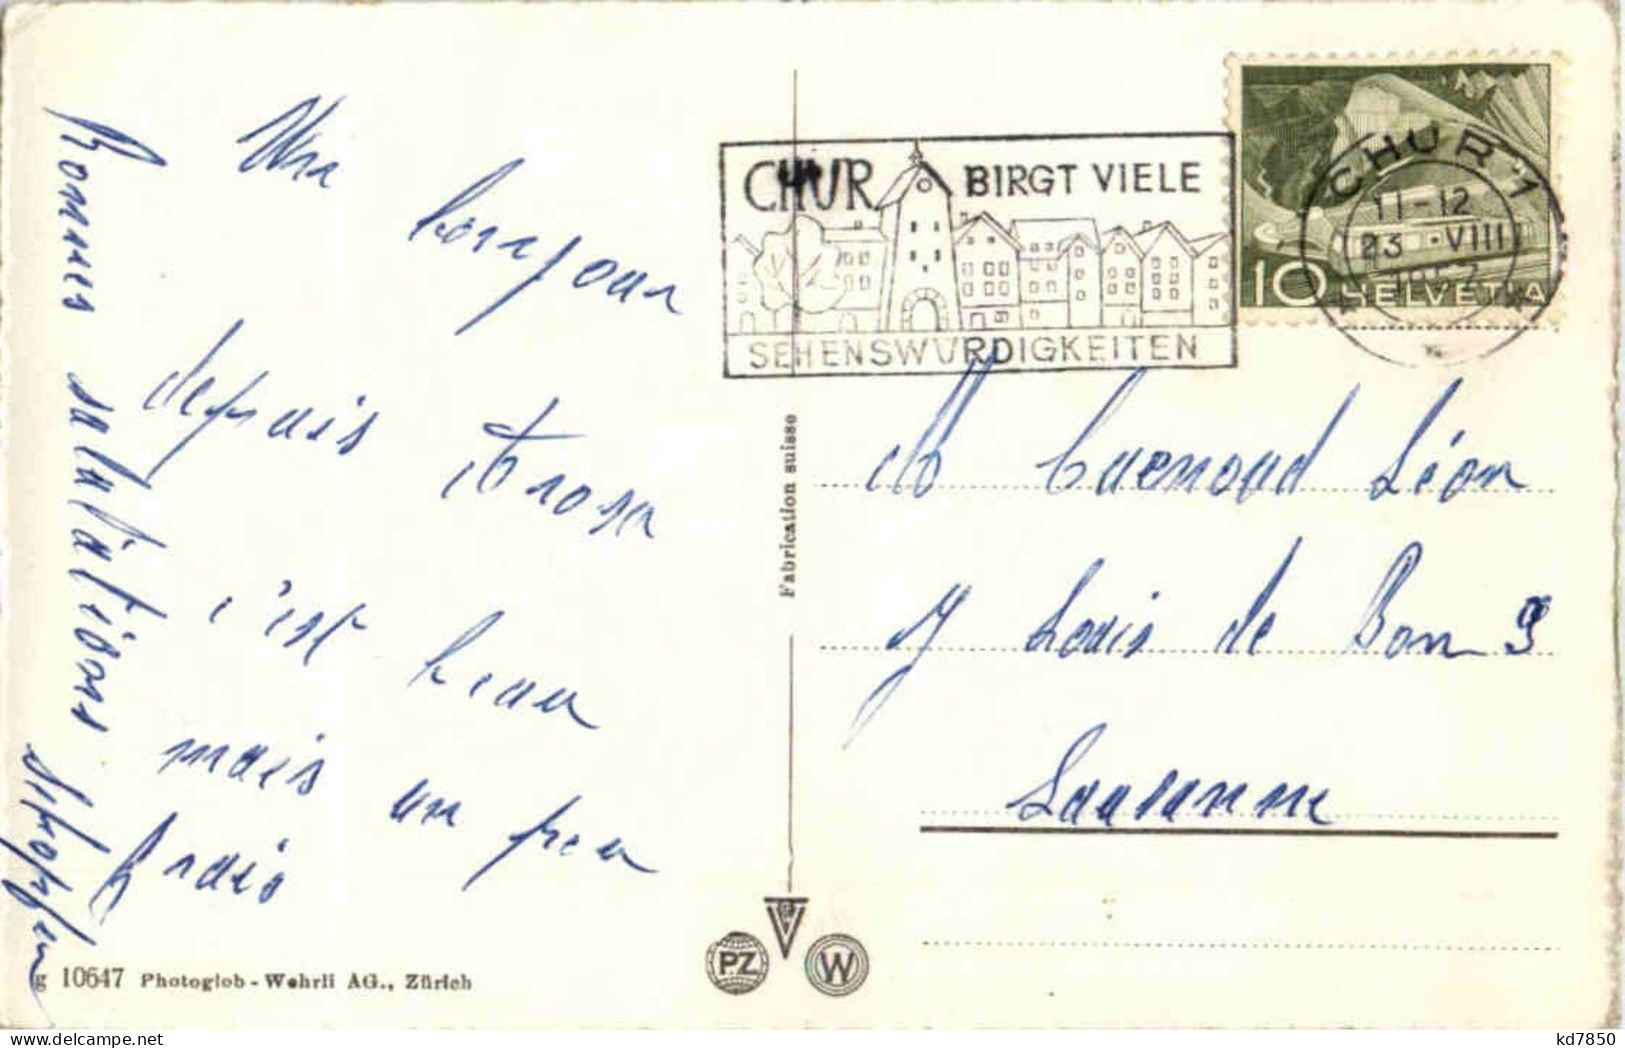 Un bonjour
depuis Arosa
c'est beau
mais un peu
frais
Bonnes salutations
CHUR BIRGT VIELE
SEHENSWÜRDIGKEITEN
CHUR 1
11-12
23 . VIII
HELVETIA
10
M Cuénoud Léon
Louis de Bon 9
Lausanne
Fabrication suisse
PZ
W
g 10647 Photoglob-Wehrli AG., Zürich
kd7850